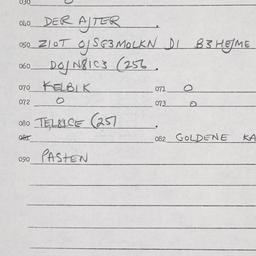 030
040 DER AJTER .
050 ZIOT OJSG3MOLKN DI B3HEJME
060 DOJN8IC3 (256 .
070 KELBIK 071 O
072 O 073 O
080 TELBICE (257 .
081 082 GOLDENE KA
090 PASTEN